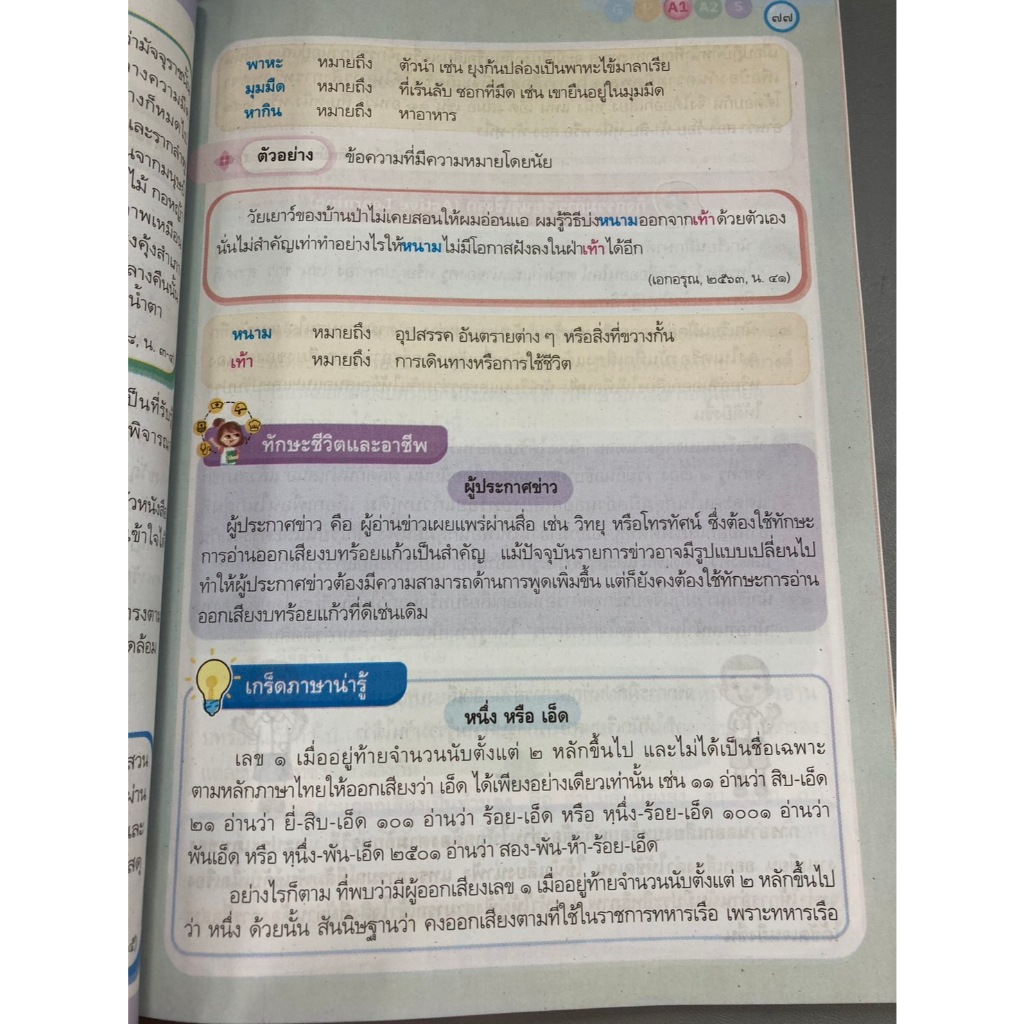 G P A1 A2 S
๗๗
พาหะ หมายถึง ตัวนำ เช่น ยุงก้นปล่องเป็นพาหะไข้มาลาเรีย
มุมมืด หมายถึง ที่เร้นลับ ซอกที่มืด เช่น เขายืนอยู่ในมุมมืด
หากิน หมายถึง หาอาหาร
ตัวอย่าง ข้อความที่มีความหมายโดยนัย
วัยเยาว์ของบ้านป่าไม่เคยสอนให้ผมอ่อนแอ ผมรู้วิธีบ่งหนามออกจากเท้าด้วยตัวเอง
นั่นไม่สำคัญเท่าทำอย่างไรให้หนามไม่มีโอกาสฝังลงในฝ่าเท้าได้อีก
(เอกอรุณ, ๒๕๖๓, น. ๔๑)
หนาม หมายถึง อุปสรรค อันตรายต่าง ๆ หรือสิ่งที่ขวางกั้น
เท้า หมายถึง การเดินทางหรือการใช้ชีวิต
ทักษะชีวิตและอาชีพ
ผู้ประกาศข่าว
ผู้ประกาศข่าว คือ ผู้อ่านข่าวเผยแพร่ผ่านสื่อ เช่น วิทยุ หรือโทรทัศน์ ซึ่งต้องใช้ทักษะ
การอ่านออกเสียงบทร้อยแก้วเป็นสำคัญ แม้ปัจจุบันรายการข่าวอาจมีรูปแบบเปลี่ยนไป
ทำให้ผู้ประกาศข่าวต้องมีความสามารถด้านการพูดเพิ่มขึ้น แต่ก็ยังคงต้องใช้ทักษะการอ่าน
ออกเสียงบทร้อยแก้วที่ดีเช่นเดิม
เกร็ดภาษาน่ารู้
หนึ่ง หรือ เอ็ด
เลข ๑ เมื่ออยู่ท้ายจำนวนนับตั้งแต่ ๒ หลักขึ้นไป และไม่ได้เป็นชื่อเฉพาะ
ตามหลักภาษาไทยให้ออกเสียงว่า เอ็ด ได้เพียงอย่างเดียวเท่านั้น เช่น ๑๑ อ่านว่า สิบ-เอ็ด
๒๑ อ่านว่า ยี่-สิบ-เอ็ด ๑๐๑ อ่านว่า ร้อย-เอ็ด หรือ หฺนึ่ง-ร้อย-เอ็ด ๑๐๐๑ อ่านว่า
พันเอ็ด หรือ หฺนึ่ง-พัน-เอ็ด ๒๕๐๑ อ่านว่า สอง-พัน-ห้า-ร้อย-เอ็ด
อย่างไรก็ตาม ที่พบว่ามีผู้ออกเสียงเลข ๑ เมื่ออยู่ท้ายจำนวนนับตั้งแต่ ๒ หลักขึ้นไป
ว่า หนึ่ง ด้วยนั้น สันนิษฐานว่า คงออกเสียงตามที่ใช้ในราชการทหารเรือ เพราะทหารเรือ